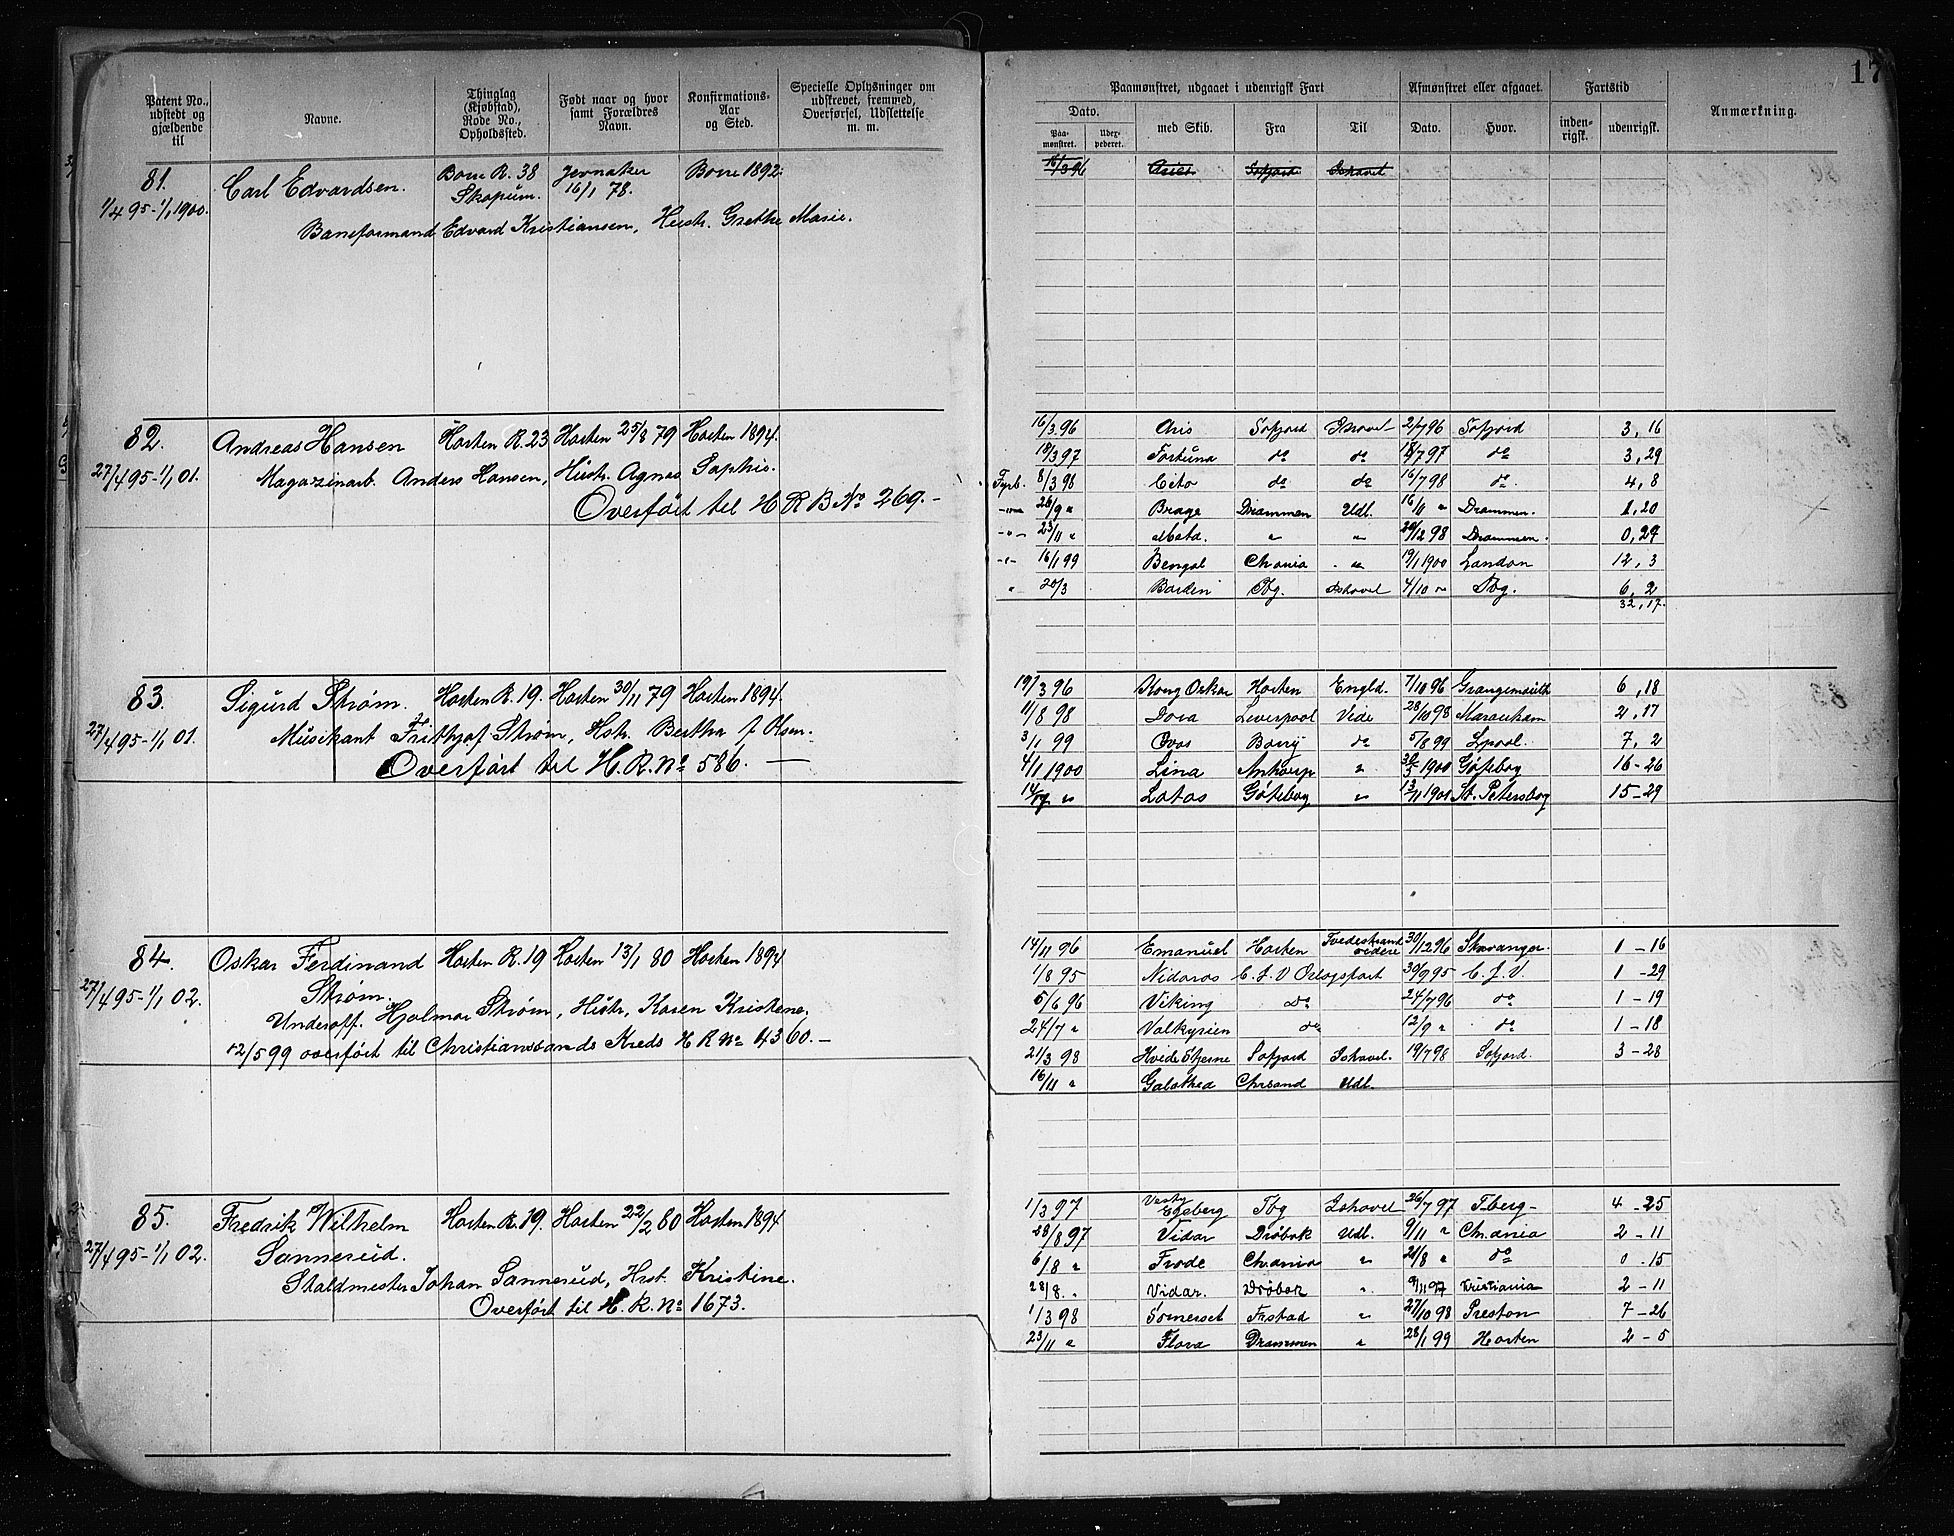 17
Patent No., udstedt og gjældende til
Navne.
Thinglag (Kjøbstad), Rode No., Opholdssted.
Født naar og hvor samt Forældres Navn.
Konfirmations-Aar og Sted.
Specielle Oplysninger om udskrevet, fremwed, Overførsel, Udslettelse m. m.
Paamønstret, udgaaet i udenrigsk Fart
Afmønstret eller afgaaet.
Fartstid
Anmærkning.
Dato.
Paa-mønstret.
Uder-pederet.
med Skib.
Fra
Til
Dato.
Hvor.
inden-rigsk.
udenrigsk.
81. Carl Edvardsen. Borre R. 38 Jevnaker Borre 1892.
1/4 95-1/1 1900. Skopum. 16/1 78.
Baneformand Edvard Kristiansen, Hustr. Grethe Marie.
16/3 96 Aries Sofjord Ishavet
82. Andreas Hansen Horten R. 23 Horten 25/8 79 Horten 1894.
27/4 95-1/1 01. Magazinarb. Anders Hansen, Hustr. Agnes Sophie.
Overført til H R B No 269.-
16/3 96 Aris Sofjord Ishavet 2/7 96 Sofjord 3, 16
18/3 97 Fortuna do do 18/7 97 do 3, 29
Fyrb. 8/3 98 Cito do do 16/7 98 do. 4, 8
26/9 " Brage Drammen Udl. 16/11 " Drammen. 1, 20
-"- 23/11 " Meta. " " 20/12 98 Drammen. 0, 27
-"- 16/1 99 Bengal Chania " 19/1 1900 London 12, 3
" 20/3 Tbg. Ishavet 4/10 " Tbg. 6, 2
32, 17.
83. Sigurd Strøm. Horten R. 19. Horten 30/11 79 Horten 1894.
27/4 95-1/1 01. Musikant Frithjof Strøm, Hstr. Bertha f Olsen.
Overført til H. R. No 586. —
19/3 96 Kong Oskar Horten Engld. 7/10 96 Grangemouth 6, 18
11/8 98 Dora Liverpool Vide 28/10 98 2, 17
3/1 99 Barry do 5/8 99 Lpool. 7, 2
4/1 1900 Lina Antwerp " 30/5 1900 Gøteborg 16-26
14/7 " Lotos Göteborg " 13/11 1901 St. Petersborg 15-29
84. Oskar Ferdinand Horten R. 19 Horten 13/1 80 Horten 1894
27/4 95-1/1 02. Strøm.
Underoff. Hjalmar Strøm, Hustr. Karen Kristene.
12/5 99 overført til Christianssands Kreds H R No 4360.-
14/11 96 Emanuel Horten Tvedestrand videre 30/12 96 Stavanger. 1-16
1/8 95 Nidaros C. J. V Orlogsfart 30/9 95 C. J. V. 1-29
5/6 96 Viking do 24/7 96 do 1-19
24/7 " Valkyrien do 12/9 " do 1-18
21/3 98 Hvide Stjerne Sofjord Ishavet. 19/7 98 Sofjord. 3-28
16/11 " Galathea Chrsand Udl.
85. Fredrik Wilhelm Horten R. 19. Horten 22/2 80 Horten 1894
27/4 95-1/1 02. Sannerud.
Staldmester Johan Sannerud, Hust. Kristine.
Overført til H. R. No 1673.
1/3 97 Vesly Egeberg Tbg Ishavet 26/7 97 Tberg- 4-25
28/8 97 Vidar Drøbak Udl. 9/11 " Chania 2-11
6/8 " Frode Chania " 21/8 " do 0-15
28/8. " Vidar. Drøbak ". 9/11 97 Kristiania 2-11
1/3 98 Somerset Frstad " 27/10 98 Preston 7-26
23/11 " Flora Drammen " 28/1 99 Horten 2-5